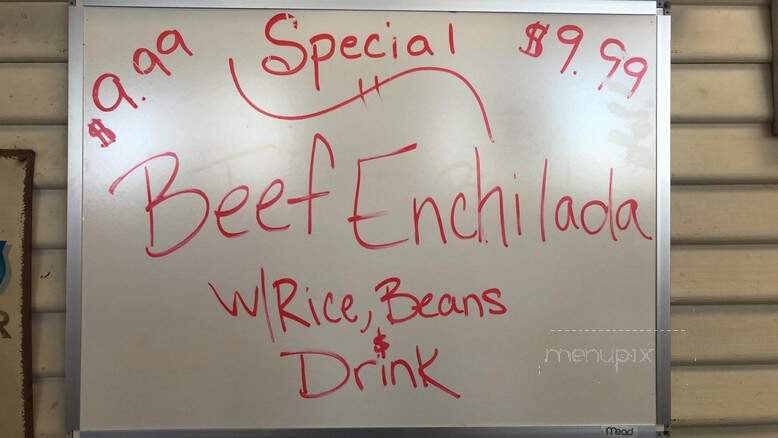 Special
$9.99
$9.99
Beef Enchilada
W/Rice, Beans
$
Drink
menupix
Mead
R